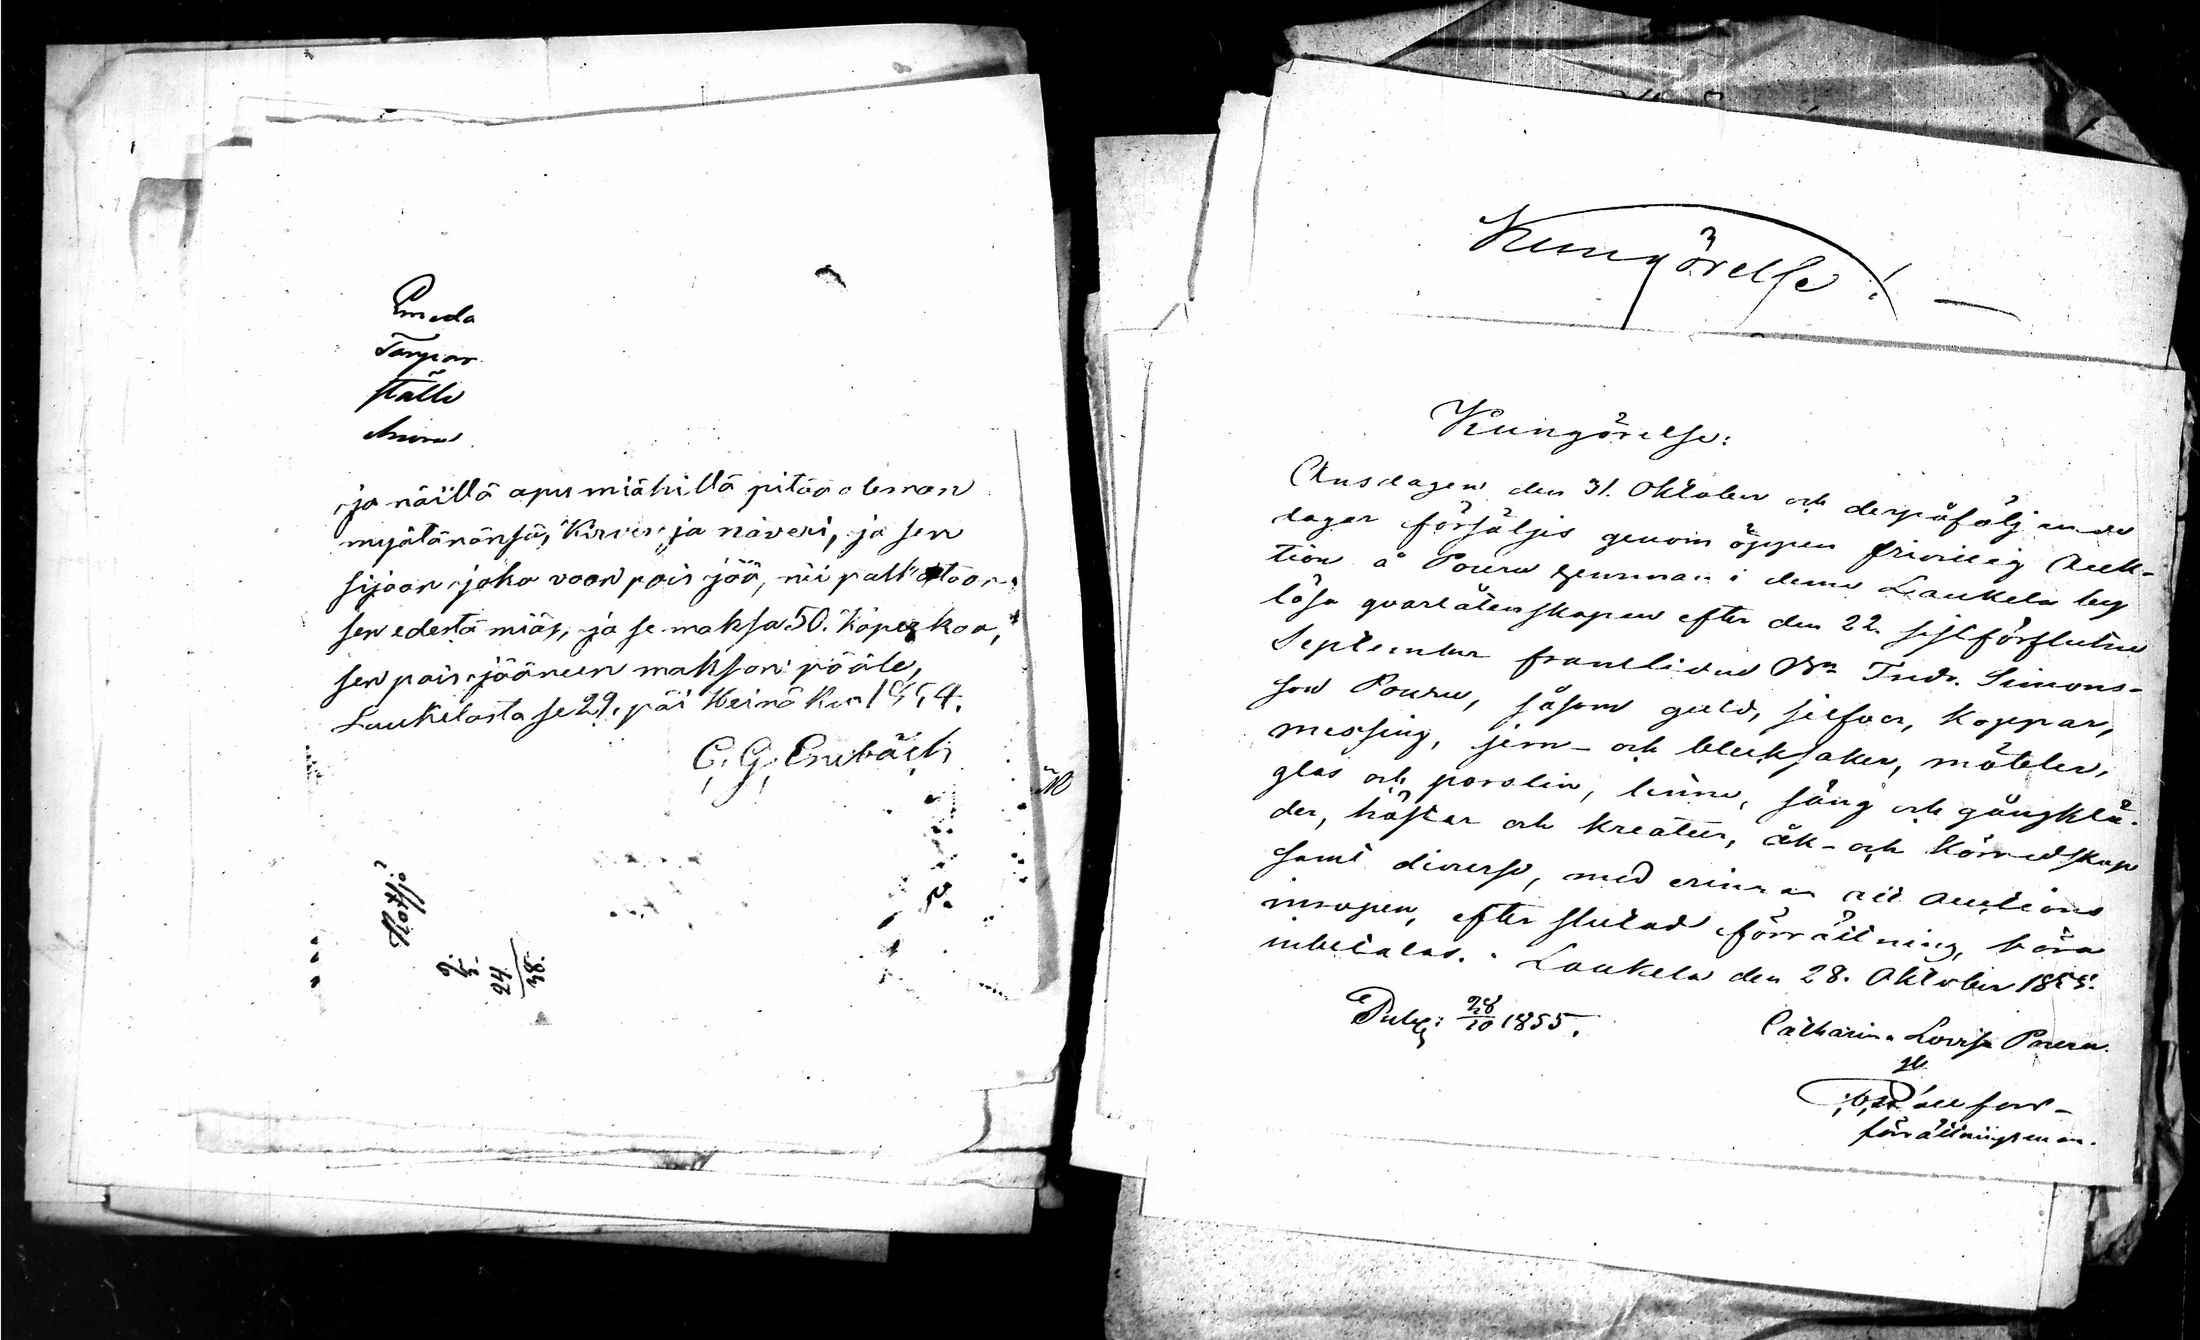 Emeda
Torpar
ställe
Anovo
ja näillä apumiähillä pitää oleman
myätänänsä, Kirves ja näveri, ja sen
sijaan joka vaan pois jää, nii palkataan
sen edestä miäs, ja se maksa 50. Kopeekkaa,
sen pois jääneen makson pääle,
Laukelasta se 29. päi Heinä Kuu 1854.
C. G. Enebäck
Kottja
9.
5.
24
38.
Kungörelse!
Kungörelse:
Onsdagen den 31. Oktober och derpåföljande
dagar försäljes genom öppen frivillig Auk-
tion å Pouru hemman i denna Laukela by
lösa qvarlåtenskapen efter den 22. sistförflutne
September framlidne Bn Thdr. Simons-
son Pouru, såsom guld, silfver, Koppar,
messing, jern- och bleksaker, möbler,
glas och porslin, linne, säng och gångklä-
der, hästar och kreatur, åk- och körredskap
samt diverse, med erinran att auctions
inropen, efter slutad förrättning, böra
inbetalas. Laukela den 28. Oktober 1855.
Publ: 28/10 1855.
Catharina Lovisa Pouru.
förrättningsman.